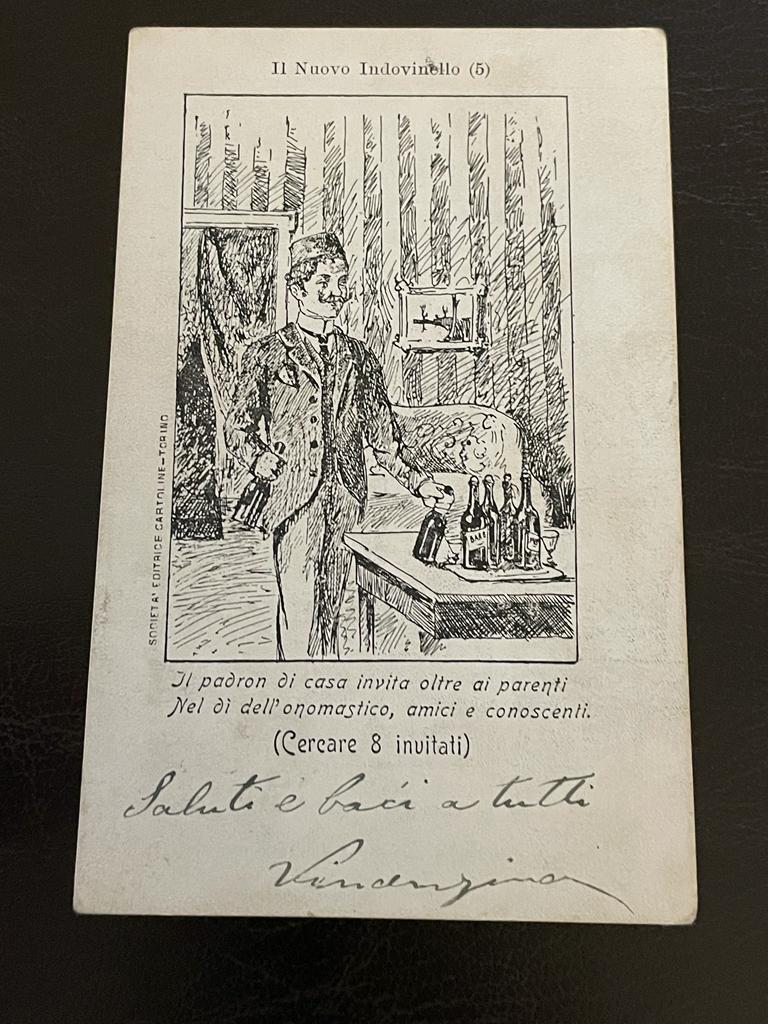 Il Nuovo Indovinello (5)
SOCIETA' EDITRICE CARTOLINE—TORINO
Il padron di casa invita oltre ai parenti
Nel dì dell'onomastico, amici e conoscenti.
(Cercare 8 invitati)
Saluti e baci a tutti